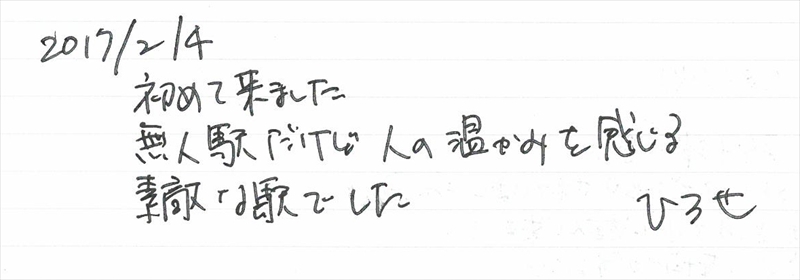 2017/2/4
初めて来ました
無人駅だけど 人の温かみを感じる
素敵な駅でした
ひろせ